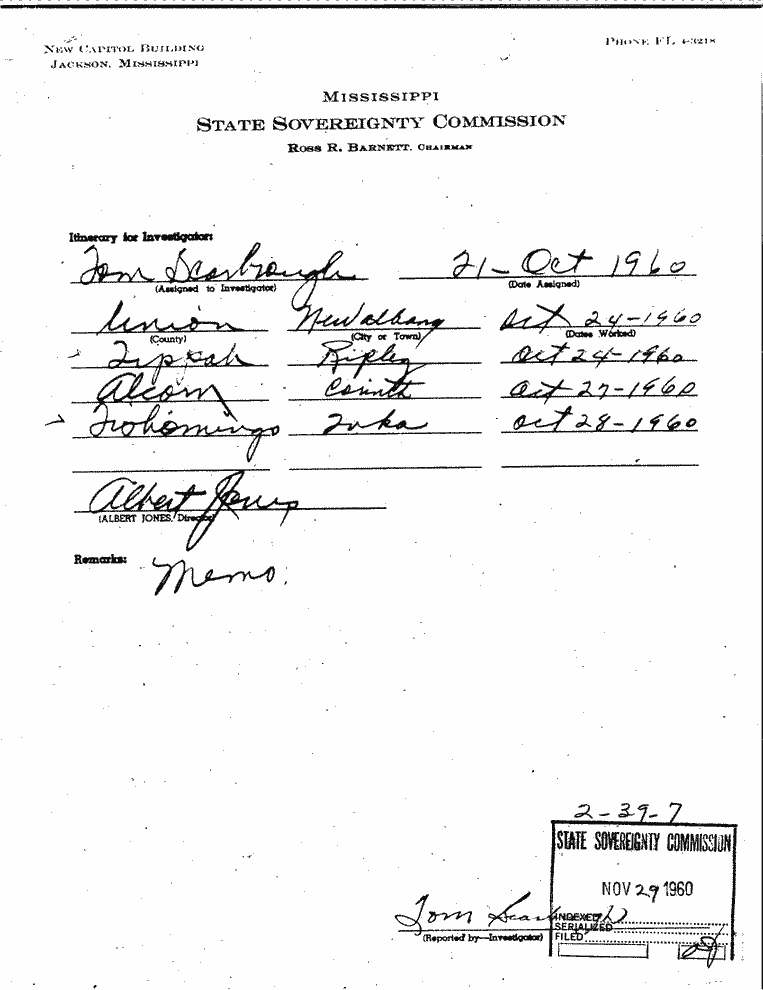 NEW CAPITOL BUILDING
JACKSON, MISSISSIPPI
PHONE FL 4-3218
MISSISSIPPI
STATE SOVEREIGNTY COMMISSION
ROSS R. BARNETT, CHAIRMAN
Itinerary for Investigator:
Tom Scarbrough 21-Oct 1960
(Assigned to Investigator) (Date Assigned)
Union New Albany Oct 24-1960
(County) (City or Town) (Dates Worked)
Tippah Ripley Oct 24-1960
Alcorn Corinth Oct 27-1960
Tishomingo Iuka Oct 28-1960
Albert Jones
(ALBERT JONES, Director)
Remarks: Memo.
2-39-7
STATE SOVEREIGNTY COMMISSION
NOV 29 1960
Tom
INDEXED
SERIALIZED
(Reported by—Investigator) FILED